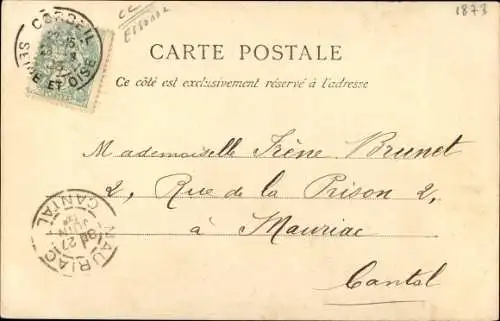 CC
Essonne
1873
CORBEIL
SEINE ET OISE
CARTE POSTALE
Ce côté est exclusivement réservé à l'adresse
Mademoiselle Irène Brunet
2, Rue de la Prison 2,
à Mauriac
Cantal
MAURIAC
CANTAL
27